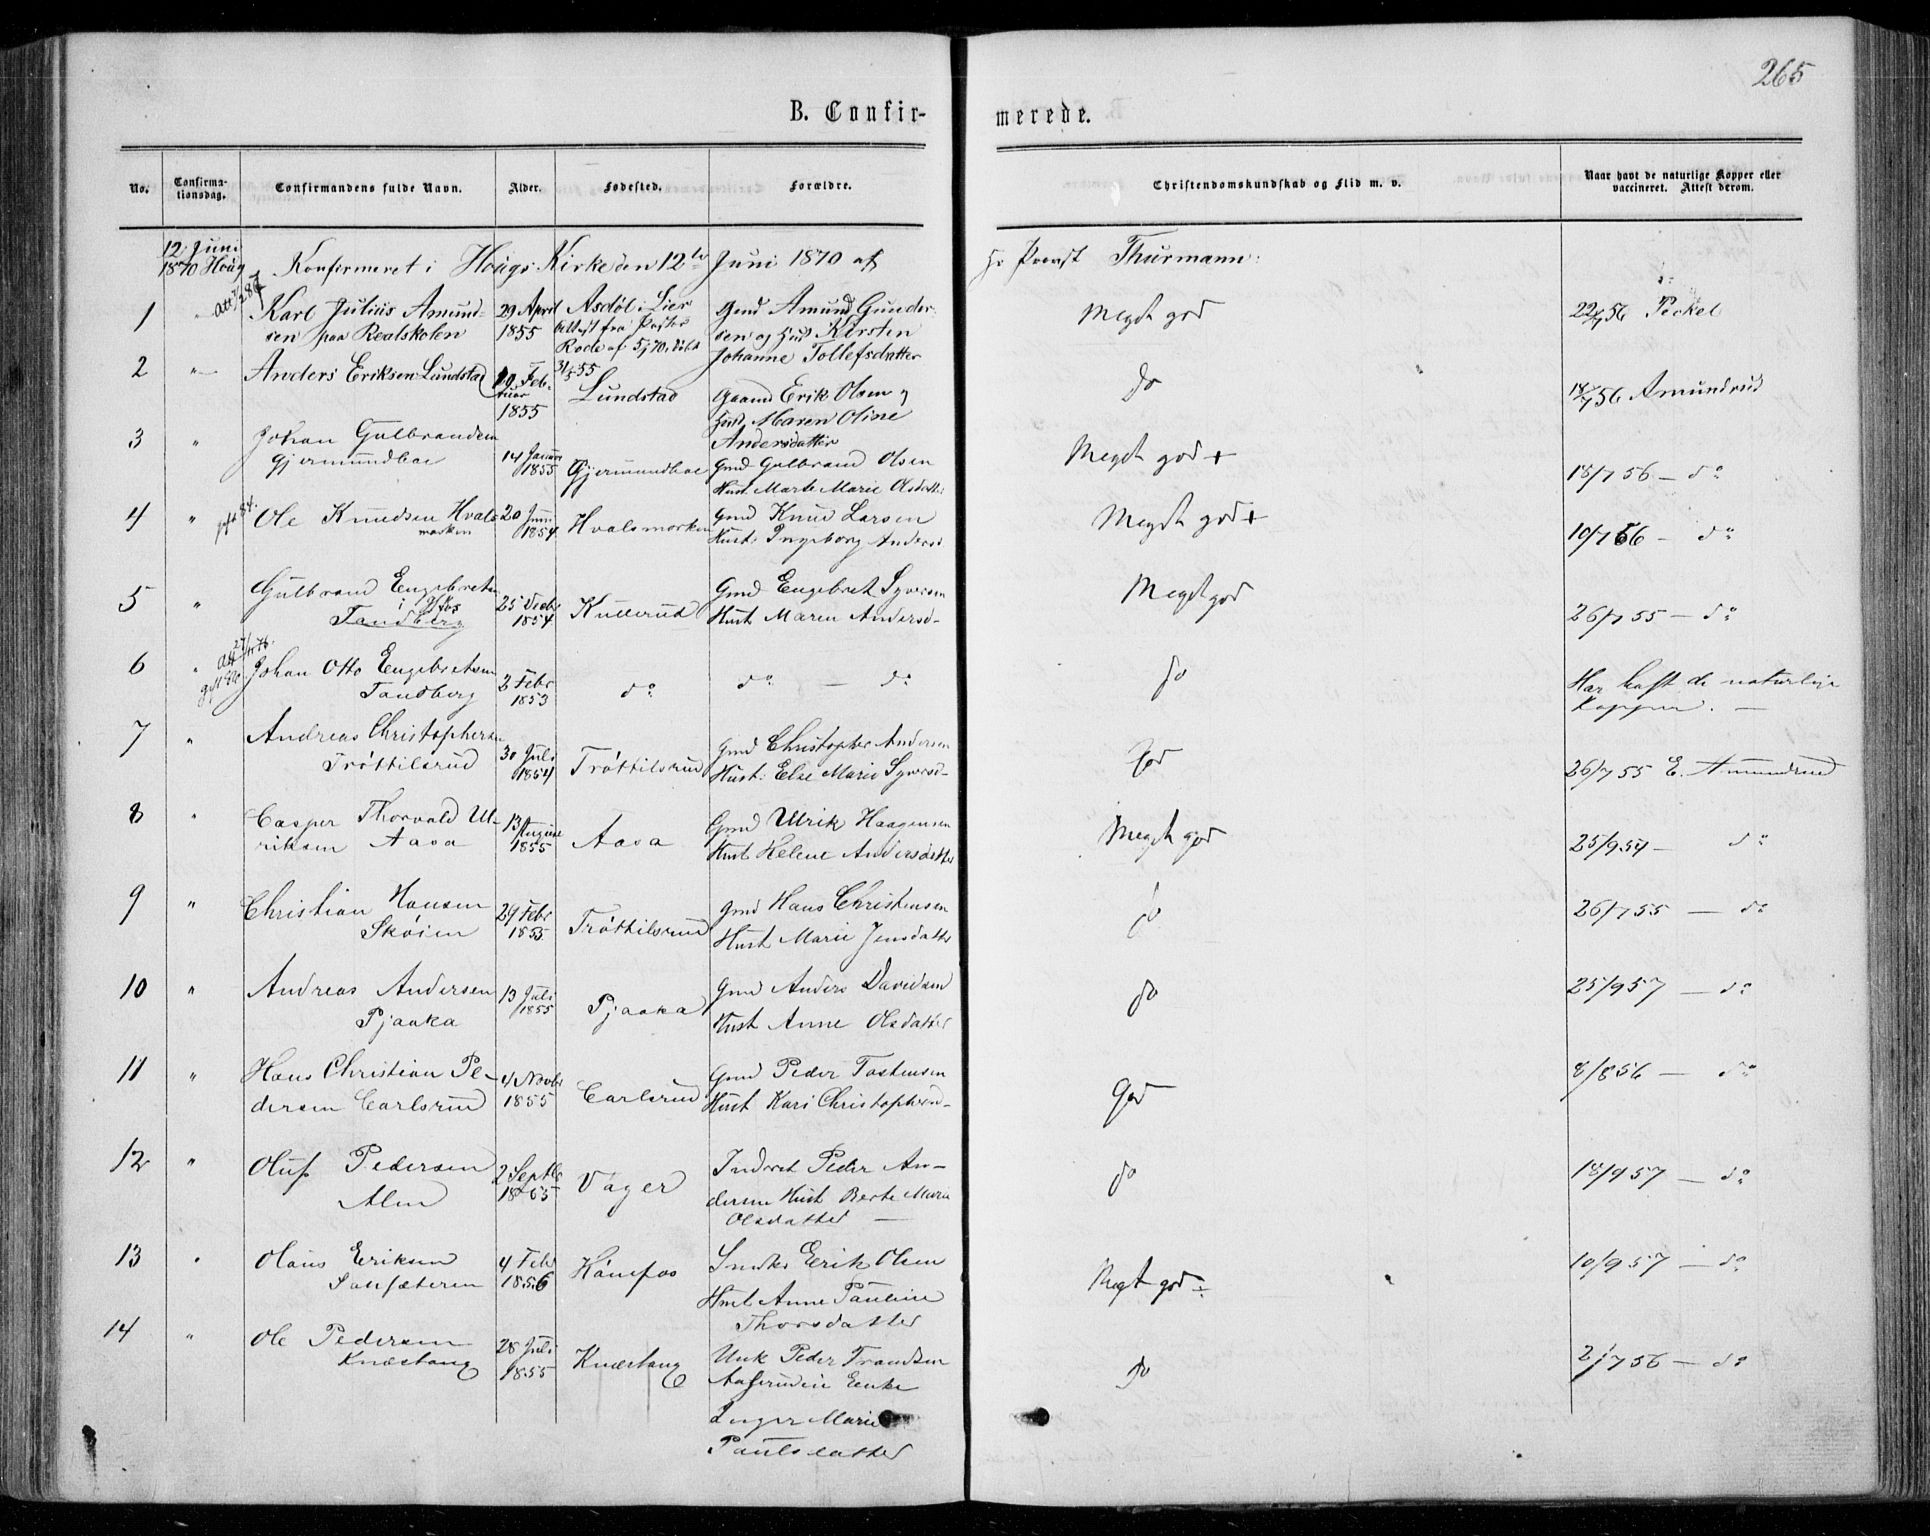 265
B. Confir-
merede.
No.
Confirma-
tionsdag.
Confirmandens fulde Navn.
Alder.
Fødested.
Forældre.
Christendomskundskab og Flid m. v.
Naar havt de naturlige Kopper eller
vaccineret. Attest derom.
12 Juni
1870 Houg
Konfirmeret i Hougs Kirke den 12te Juni 1870 af Hr Provst Thurmann:
1
Karl Julius Amund-
sen paa Realskolen
29 April
1855
Asdøl i Lier
Attest fra Pastor
Rode af 5/
31/5 55
Gmd Amund Gunder-
sen og Hust Kirsten
Johanne Tollefsdatter
Meget god
56 Pockel
2
Anders Eriksen Lundstad
19 Feb-
ruar
1855
Lundstad
Gaamd Erik Olsen og
Hust. Maren Oline
Andersdatter
do
18/7 56 Amundrud
3 "
Johan Gulbrandsen
Gjermundboe
14 Januar
1855
Gjermundboe
Gmd Gulbrand Olsen
Hust. Marte Marie Olsdatter
Meget god +
18/7 56 — do
4 "
Ole Knudsen Hvals-
morken
20 Juni
1854
Hvalsmorken
Gmd Knud Larsen
Hust: Ingeborg Andersd
Meget god +
10/7 66 — do
5 "
Gulbrand Engebretsen
Tandberg
25 Decbr
1854
Kullerud
Gmd Engebret Syversen
Hust Maren Andersd-
Meget god
26/7 55 — do
6 "
Att 27/
Johan Otto Engebretsen
Tandberg
2 Febr
1853
do
do — do
do
Har havt de naturlige
Kopper. —
7 "
Andreas Christophersen
Trøttilsrud
30 Juli
1854
Trøttilsrud
Gmd Christopher Andersen
Hust: Else Marie Syversd-
God
26/7 55 E. Amundrud
8 "
Casper Thorvald Ul-
riksen Aasa
13 August
1855
Aasa
Gmd Ulrik Haagensen
Hust Helene Andersdatter
Meget god
25/9 54 — do
9 "
Christian Hansen
Skøien
29 Febr
1855
Trøttilsrud
Gmd Hans Christensen
Hust Marie Jensdatter
do
26/7 55 — do
10 "
Andreas Andersen
Pjaaka
13 Juli
1855
Pjaaka
Gmd Anders Davidsen
Hust Anne Olsdatter
do
25/9 57 — do
11 "
Hans Christian Pe-
dersen Carlsrud
4 Novbr
1855
Carlsrud
Gmd Peder Tostensen
Hust Kari Christophersd-
God
8/8 56 — do
12 "
Oluf Pedersen
Alm
2 Septbr
1855
Vager
Inderst Peder An-
dersen Hust Berte Marie
Olsdatter —
do
18/9 57 — do
13 "
Olaus Eriksen
4 Febr
1856
Hønefos
Erik Olsen
Hust Anne Pauline
Thorsdatter
Megt god ÷
10/9 57 — do
14 "
Ole Pedersen
Knæstang
28 Juli
1855
Knæstang
Unk Peder Trondsen
Enke
Inger Marie
Paulsdatter
do
21/7 56 — do